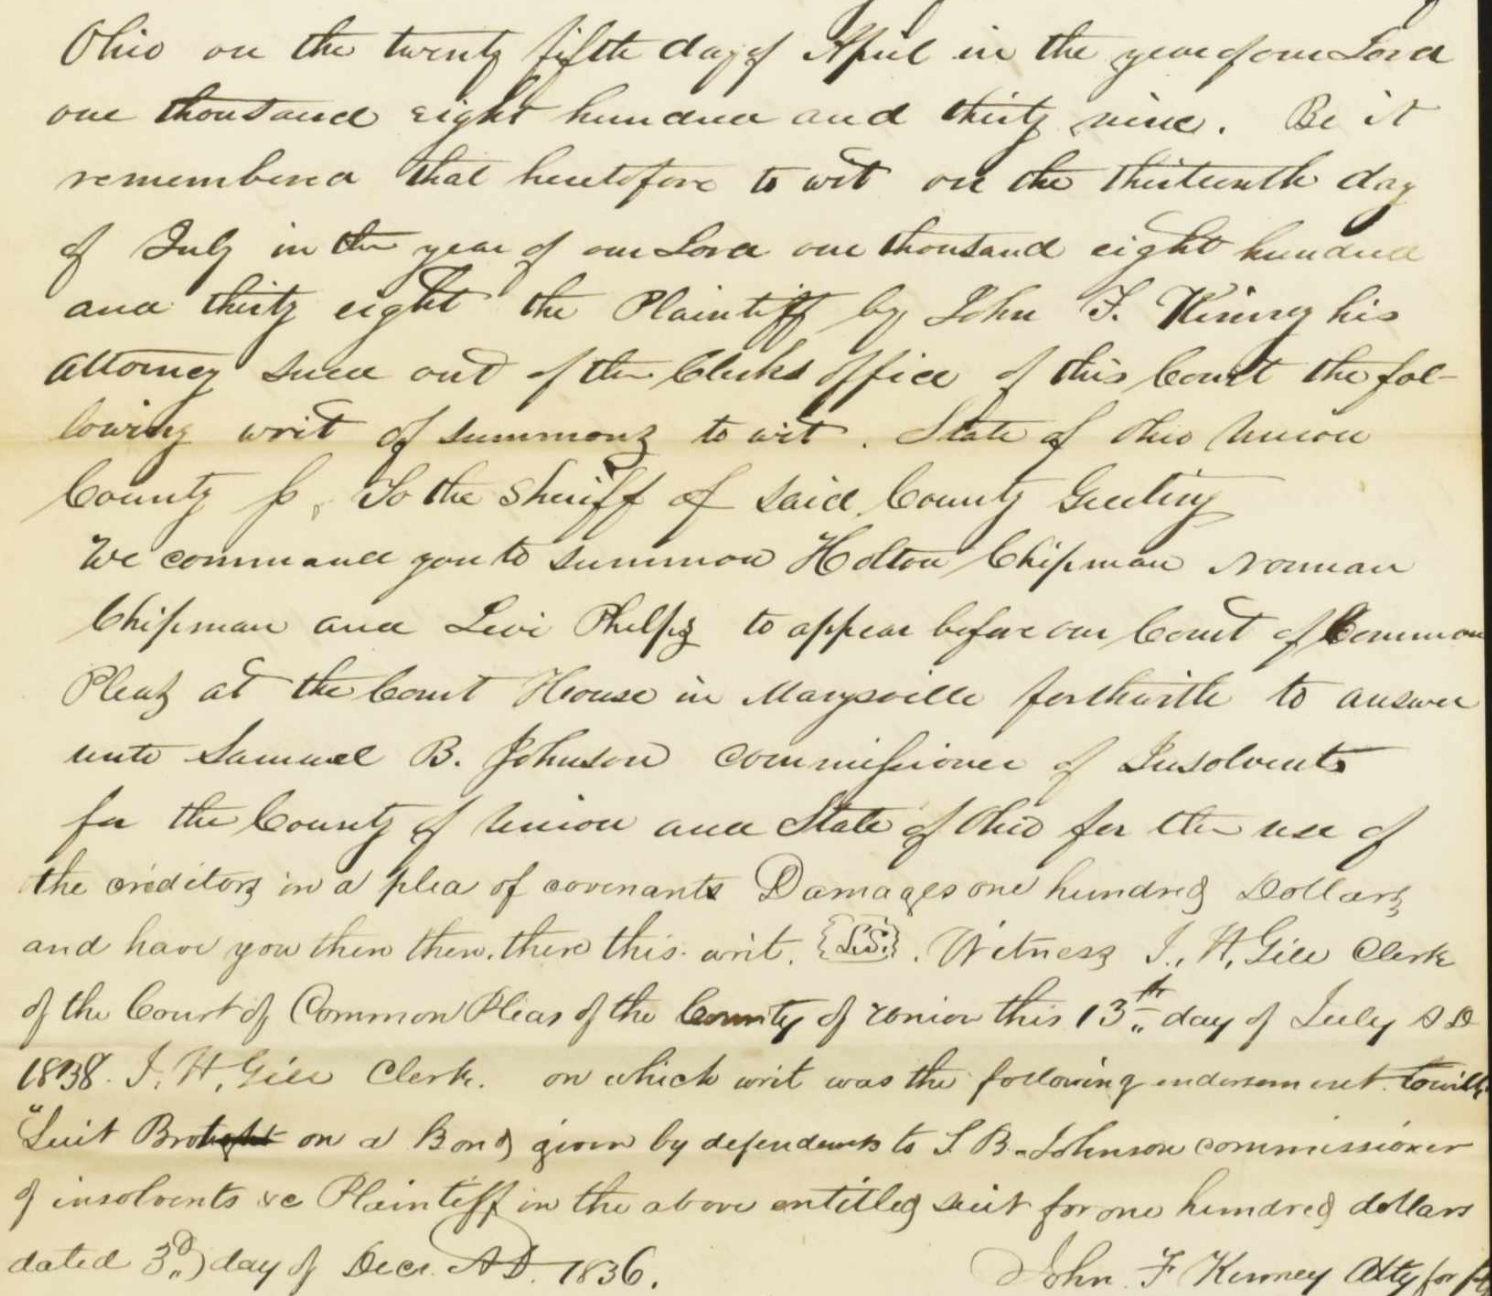 Ohio on the twenty fifth day of April in the year of our Lord
one thousand eight hundred and thirty nine. Be it
remembered that heretofore to wit on the thirteenth day
of July in the year of our Lord one thousand eight hundred
and thirty eight the Plaintiff by John F. Kinney his
attorney sued out of the Clerks office of this Court the fol-
lowing writ of summons to wit. State of Ohio Union
County ss, To the Sheriff of said County Greeting
We command you to summon Holton Chipman Norman
Chipman and Levi Phelps to appear before our Court of Common
Pleas at the Court House in Marysville forthwith to answer
unto Samuel B. Johnson commissioner of Insolvents
for the County of Union and State of Ohio for the use of
the creditors in a plea of covenants Damages one hundred Dollars
and have you then then, there this writ. {L.S.}. Witness J. H. Gill Clerk
of the Court of Common Pleas of the County of Union this 13th day of July AD
1838. J. H. Gill Clerk. on which writ was the following endorsement towitt
"Suit Brought on a Bond given by defendants to S B. Johnson commissioner
of insolvents &c Plaintiff in the above entitled suit for one hundred dollars
dated 3d day of Decr. AD. 1836. John F Kinney Atty for